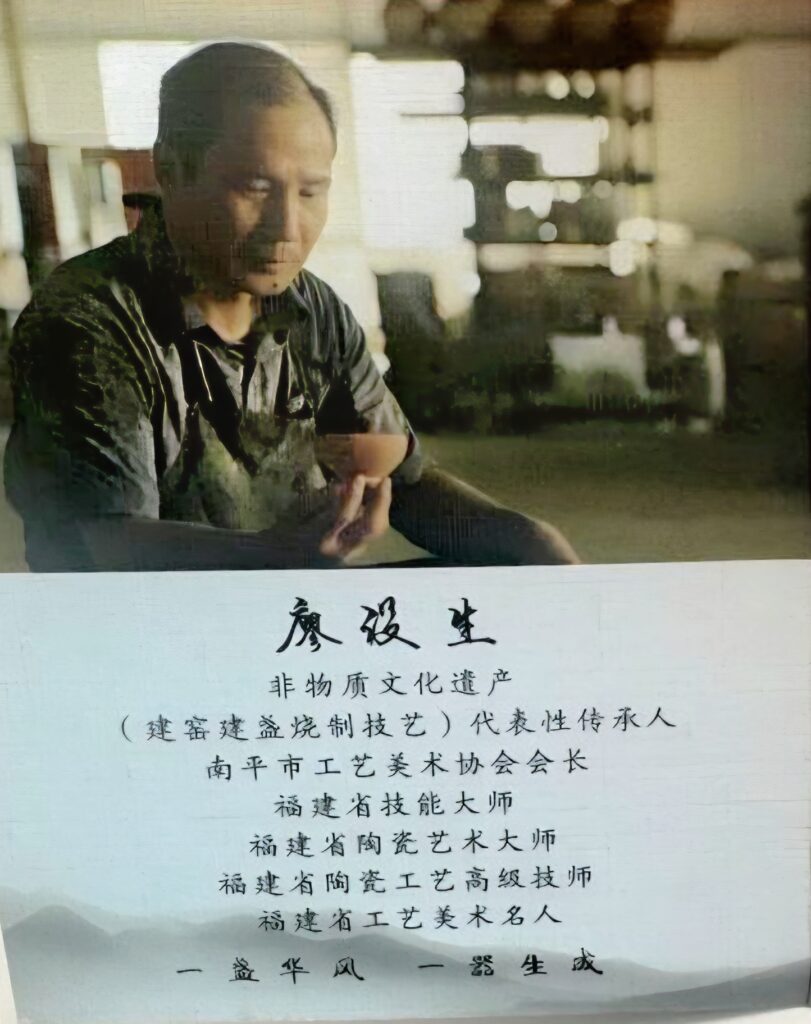 廖设生
非物质文化遗产
（建窑建盏烧制技艺）代表性传承人
南平市工艺美术协会会长
福建省技能大师
福建省陶瓷艺术大师
福建省陶瓷工艺高级技师
福建省工艺美术名人
一盏华风 一器生成